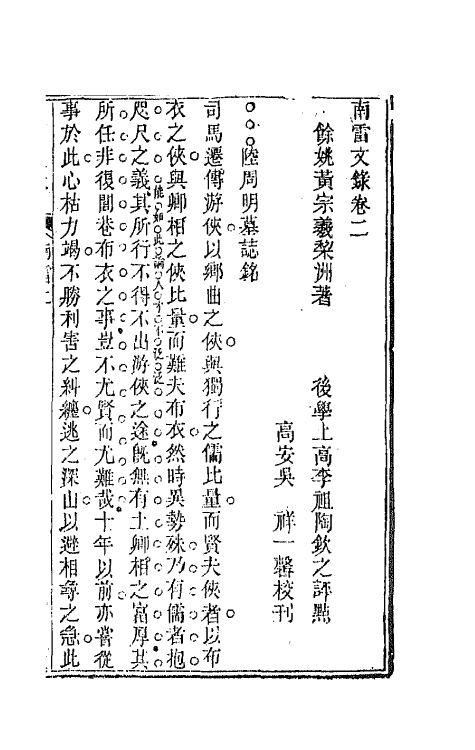 南雷文錄卷二
餘姚黃宗羲棃洲著　後學上高李祖陶欽之評點
高安吳　祥一馨校刊
○○○陸周明墓誌銘
司馬遷傳游俠以鄉曲之俠與獨行之儒比量而賢夫俠者以布
衣之俠與卿相之俠比量而難夫布衣然時異勢殊乃有儒者抱
能如此論人才不泛泛
咫尺之義其所行不得不出游俠之途旣無有土卿相之富厚其
所任非復閭巷布衣之事豈不尤賢而尤難哉十年以前亦嘗從
事於此心枯力竭不勝利害之糾纏逃之深山以避相尋之急此